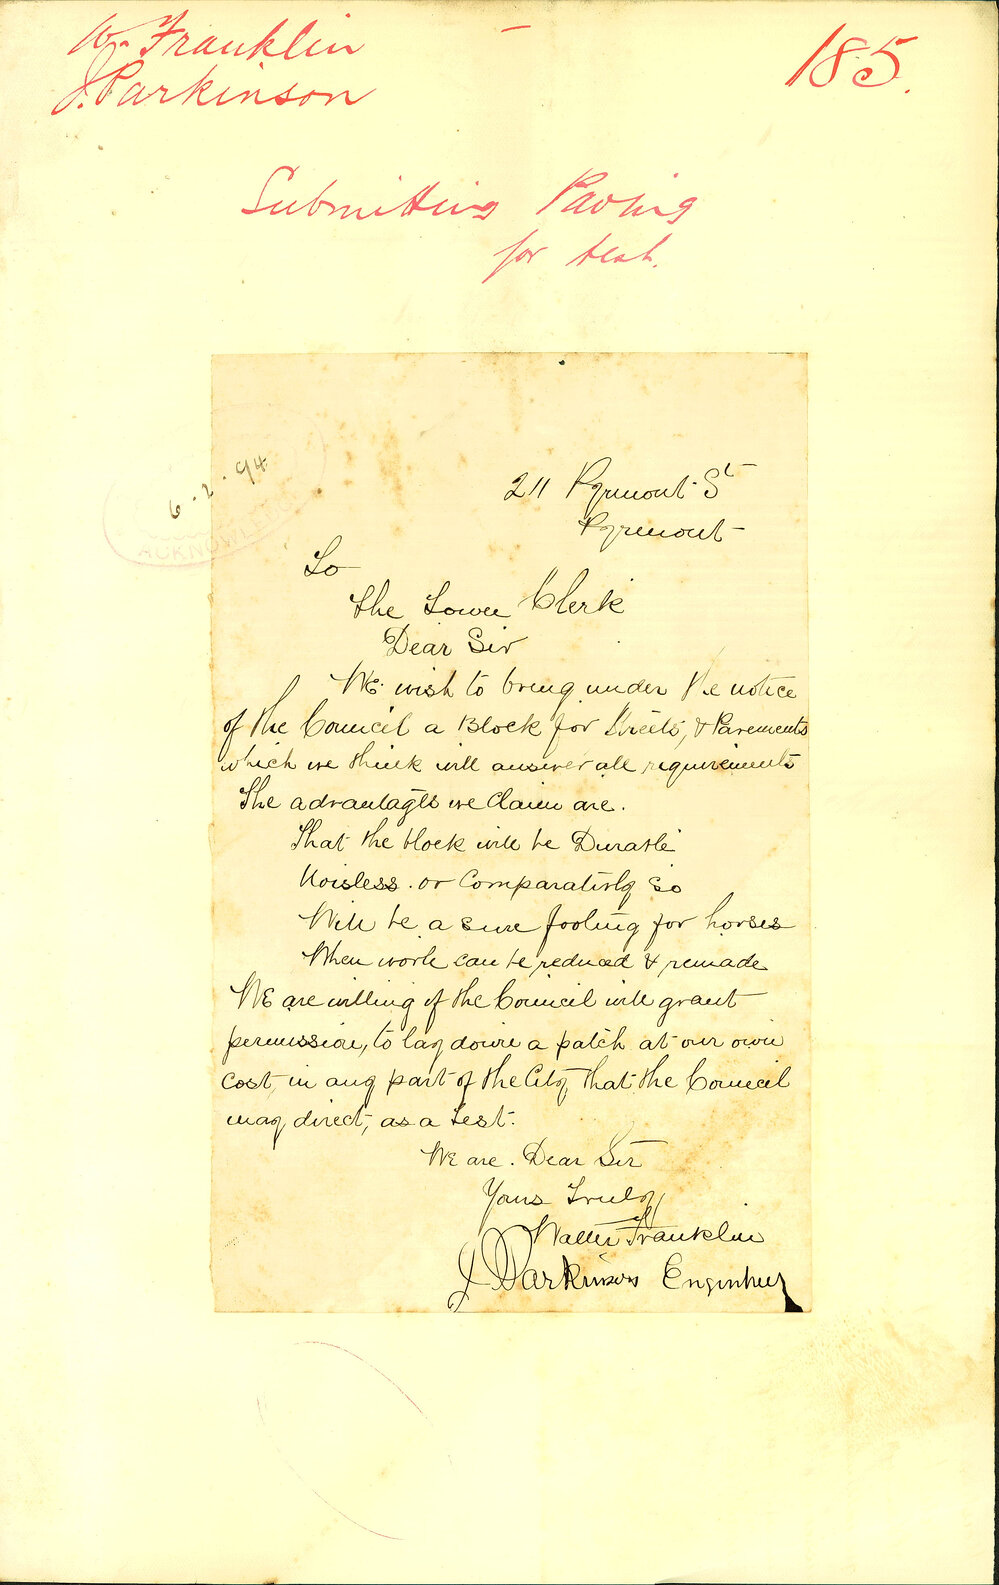 W. Franklin
J. Parkinson
185.
Submitting Paving
for test.
6.2.94
ACKNOWLEDGED
211 Pyrmont St
Pyrmont
To
The Town Clerk
Dear Sir
We wish to bring under the notice
of the Council a Block for Streets, & Pavements
which we think will answer all requirements
The advantages we claim are.
That the block will be Durable
Noisless. or Comparativly so
Will be a sure footing for horses
When worn can be reduced & remade
We are willing if the Council will grant
permission, to lay down a patch at our own
cost, in any part of the City that the Council
may direct, as a Test.
We are. Dear Sir
Yours Truly
Walter Franklin
J Parkinson Enginher